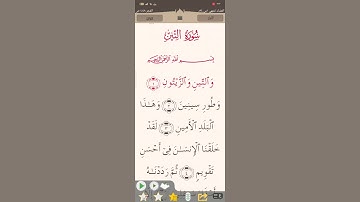 سُورَةُ التِّينِ
بِسْمِ اللَّهِ الرَّحْمَٰنِ الرَّحِيمِ
وَٱلتِّينِ وَٱلزَّيْتُونِ ١
وَطُورِ سِينِينَ ٢ وَهَٰذَا
ٱلْبَلَدِ ٱلْأَمِينِ ٣ لَقَدْ
خَلَقْنَا ٱلْإِنسَٰنَ فِىٓ أَحْسَنِ
تَقْوِيمٍ ٤ ثُمَّ رَدَدْنَٰهُ